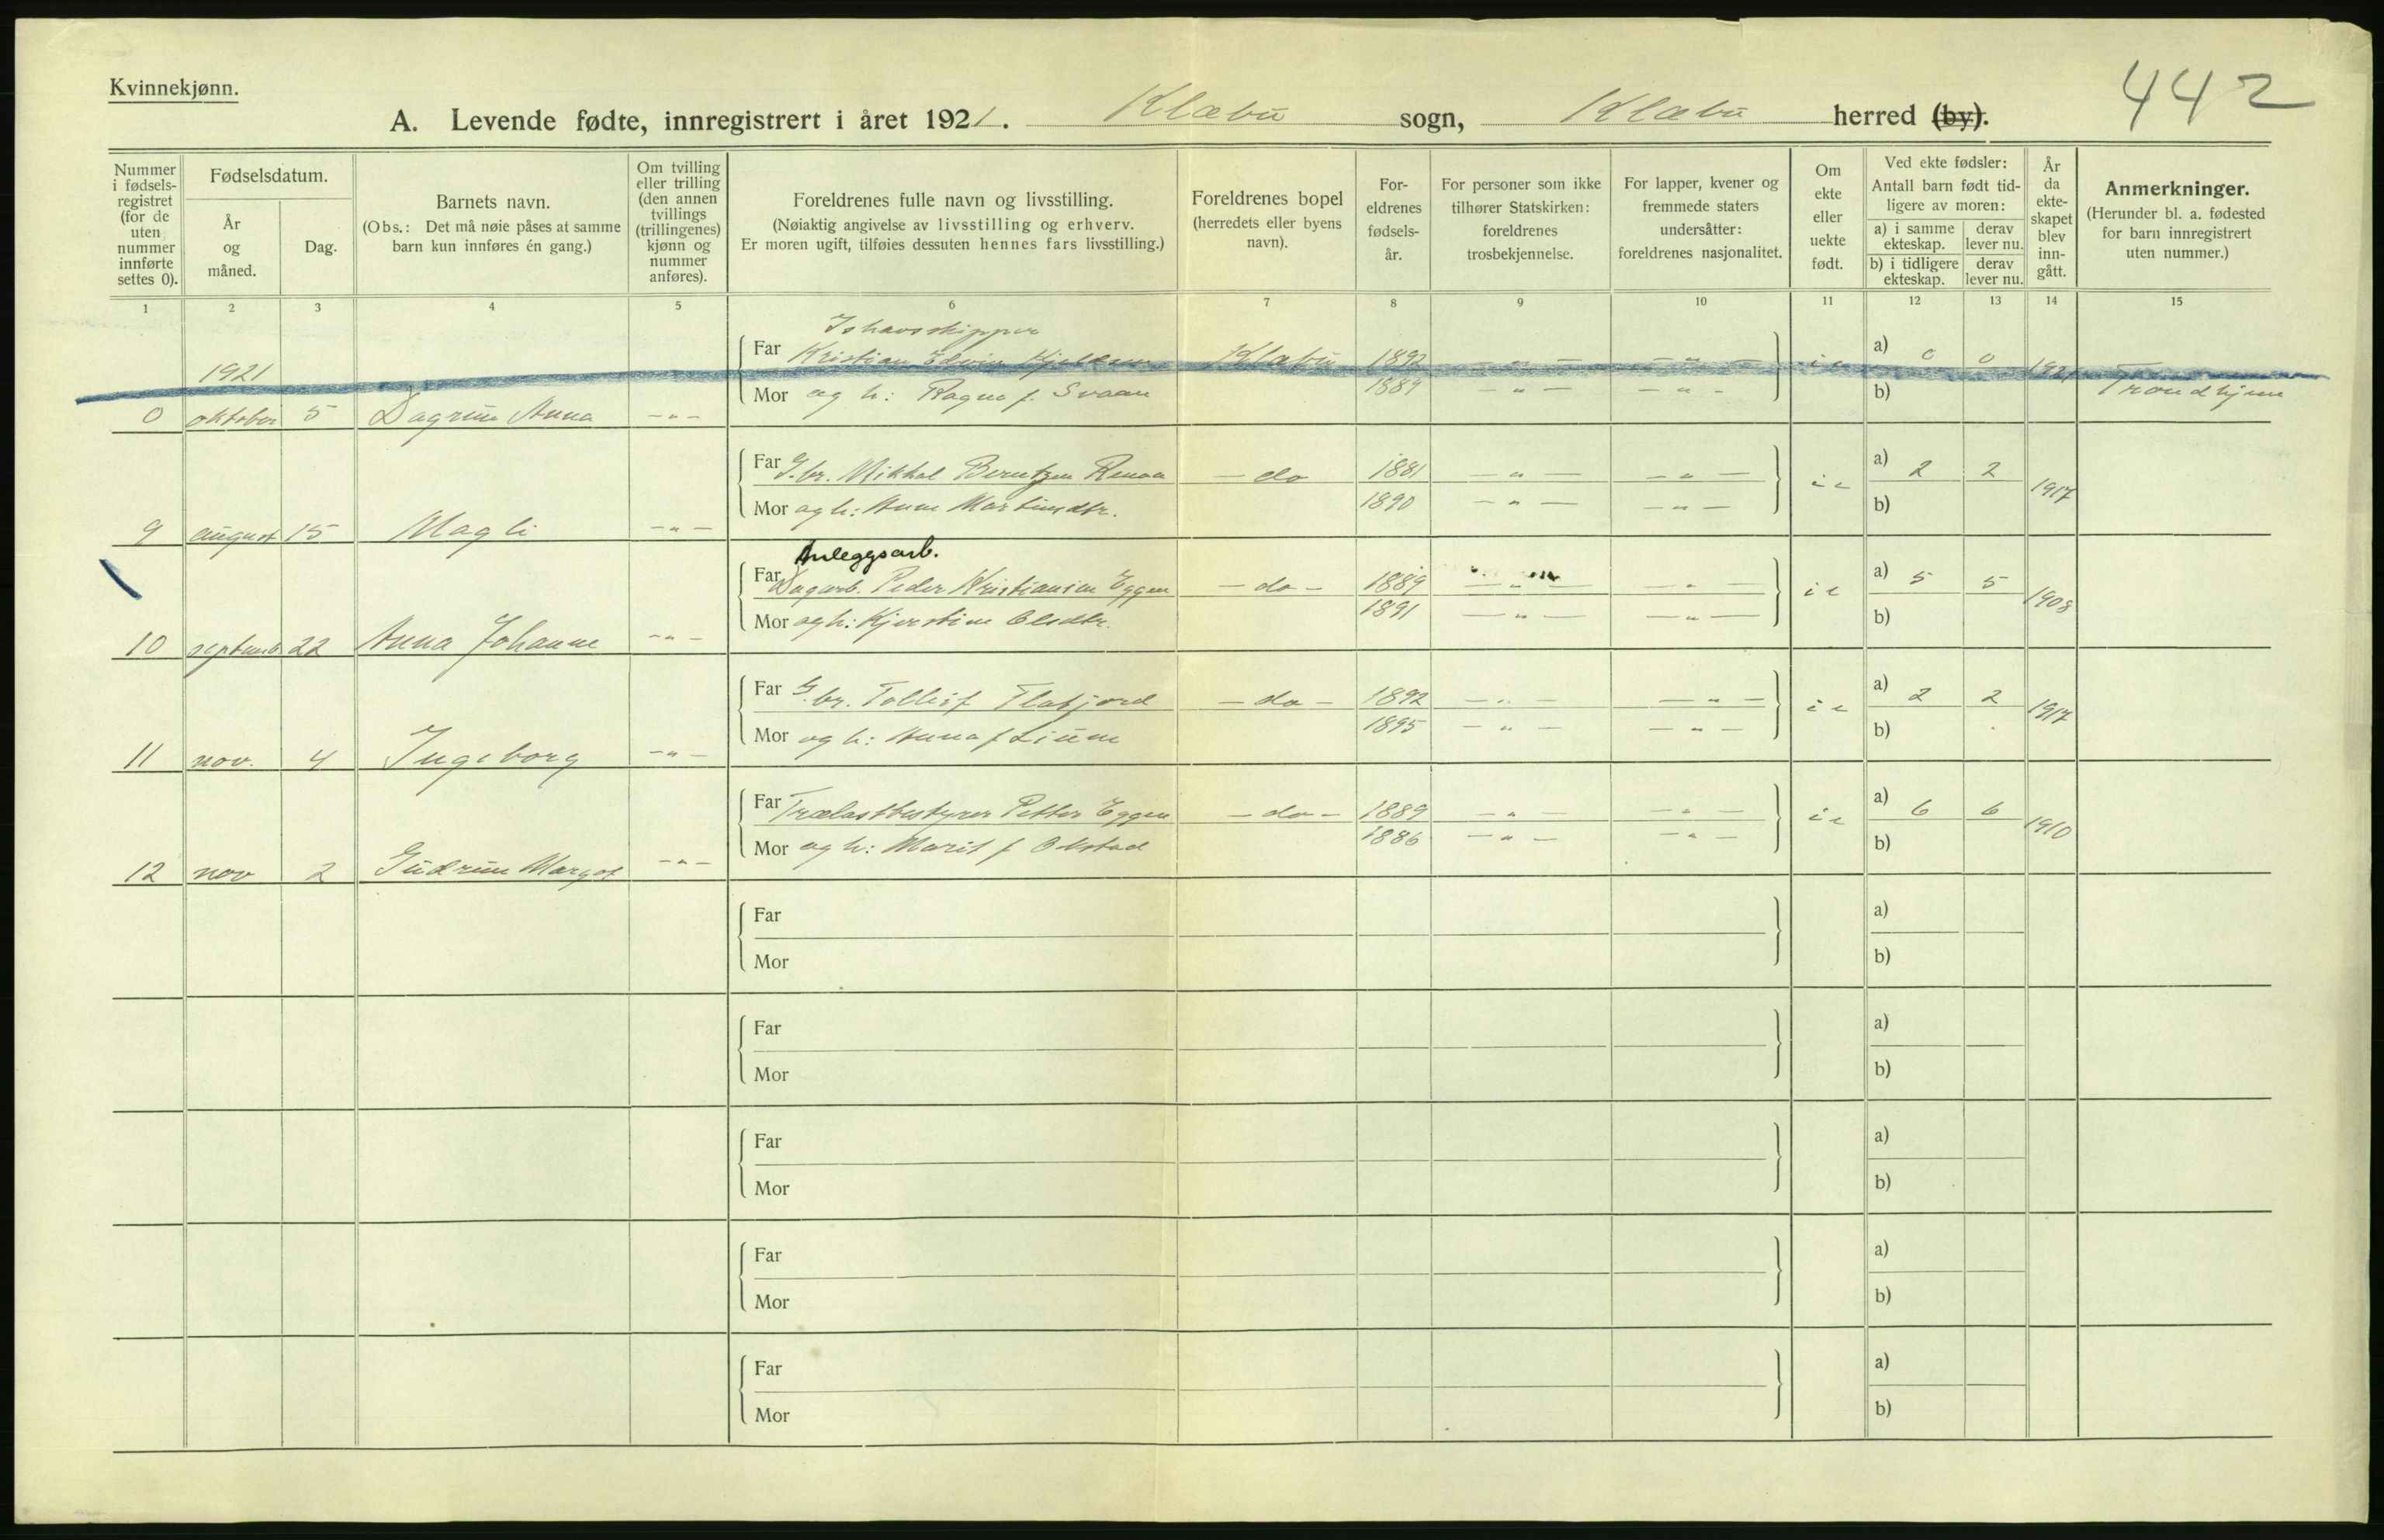 Kvinnekjønn.
442
A. Levende fødte, innregistrert i året 1921. Klæbu sogn, Klæbu herred (by).
Nummer i fødsels-registret (for de uten nummer innførte settes 0).
Fødselsdatum.
År og måned.
Dag.
Barnets navn.
(Obs.: Det må nøie påses at samme barn kun innføres én gang.)
Om tvilling eller trilling (den annen tvillings (trillingenes) kjønn og nummer anføres).
Foreldrenes fulle navn og livsstilling.
(Nøiaktig angivelse av livsstilling og erhverv.
Er moren ugift, tilføies dessuten hennes fars livsstilling.)
Foreldrenes bopel
(herredets eller byens navn).
For-eldrenes fødsels-år.
For personer som ikke tilhører Statskirken: foreldrenes trosbekjennelse.
For lapper, kvener og fremmede staters undersåtter: foreldrenes nasjonalitet.
Om ekte eller uekte født.
Ved ekte fødsler:
Antall barn født tid-ligere av moren:
a) i samme ekteskap.
derav lever nu.
b) i tidligere ekteskap.
derav lever nu.
År da ekte-skapet blev inn-gått.
Anmerkninger.
(Herunder bl. a. fødested for barn innregistrert uten nummer.)
1 2 3 4 5 6 7 8 9 10 11 12 13 14 15
Ishavsskipper
1921
Far Kristian Edvin Klæbu 1892 — " — — " — a) 0 0 1921 Trondhjem
Mor og h: Ragna f. Svaan 1889 — " — — " — b)
0 oktober 5 Dagrun Anna — " —
Far G.br. Mikkal Berntzen — do 1881 — " — — " — a) 2 2 1917
Mor og h: Anne Martinsdtr. 1890 — " — — " — b)
9 august 15 Magli — " —
Anleggsarb.
Far Dagarb. Peder Kristiansen Eggen — do — 1889 — " — — " — a) 5 5 1908
Mor og h: Kjerstine Olsdtr. 1891 — " — — " — b)
10 septemb. 22 Anna Johanne — " —
Far G.br. Tolleif Flatjord — do — 1892 — " — — " — a) 2 2 1917
Mor og h: Anna f. Lium 1895 — " — — " — b)
11 nov. 4 Ingeborg — " —
Far Trælastbestyrer Petter Eggen — do — 1889 — " — — " — a) 6 6 1910
Mor og h: Marit f. Okstad 1886 — " — — " — b)
12 nov 2 Gudrun Margot — " —
Far a)
Mor b)
Far a)
Mor b)
Far a)
Mor b)
Far a)
Mor b)
Far a)
Mor b)